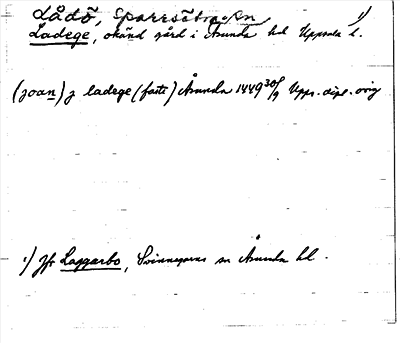 Lådö, Sparrsätra sn 1)
Ladege, okänd gård i Åsunda hd Uppsala l.
(joan) j ladege (faste) Åsunda 1449 30/9 Upps. dipl. orig
1) Jfr Laggarbo, Svinnegarns sn Åsunda hd.